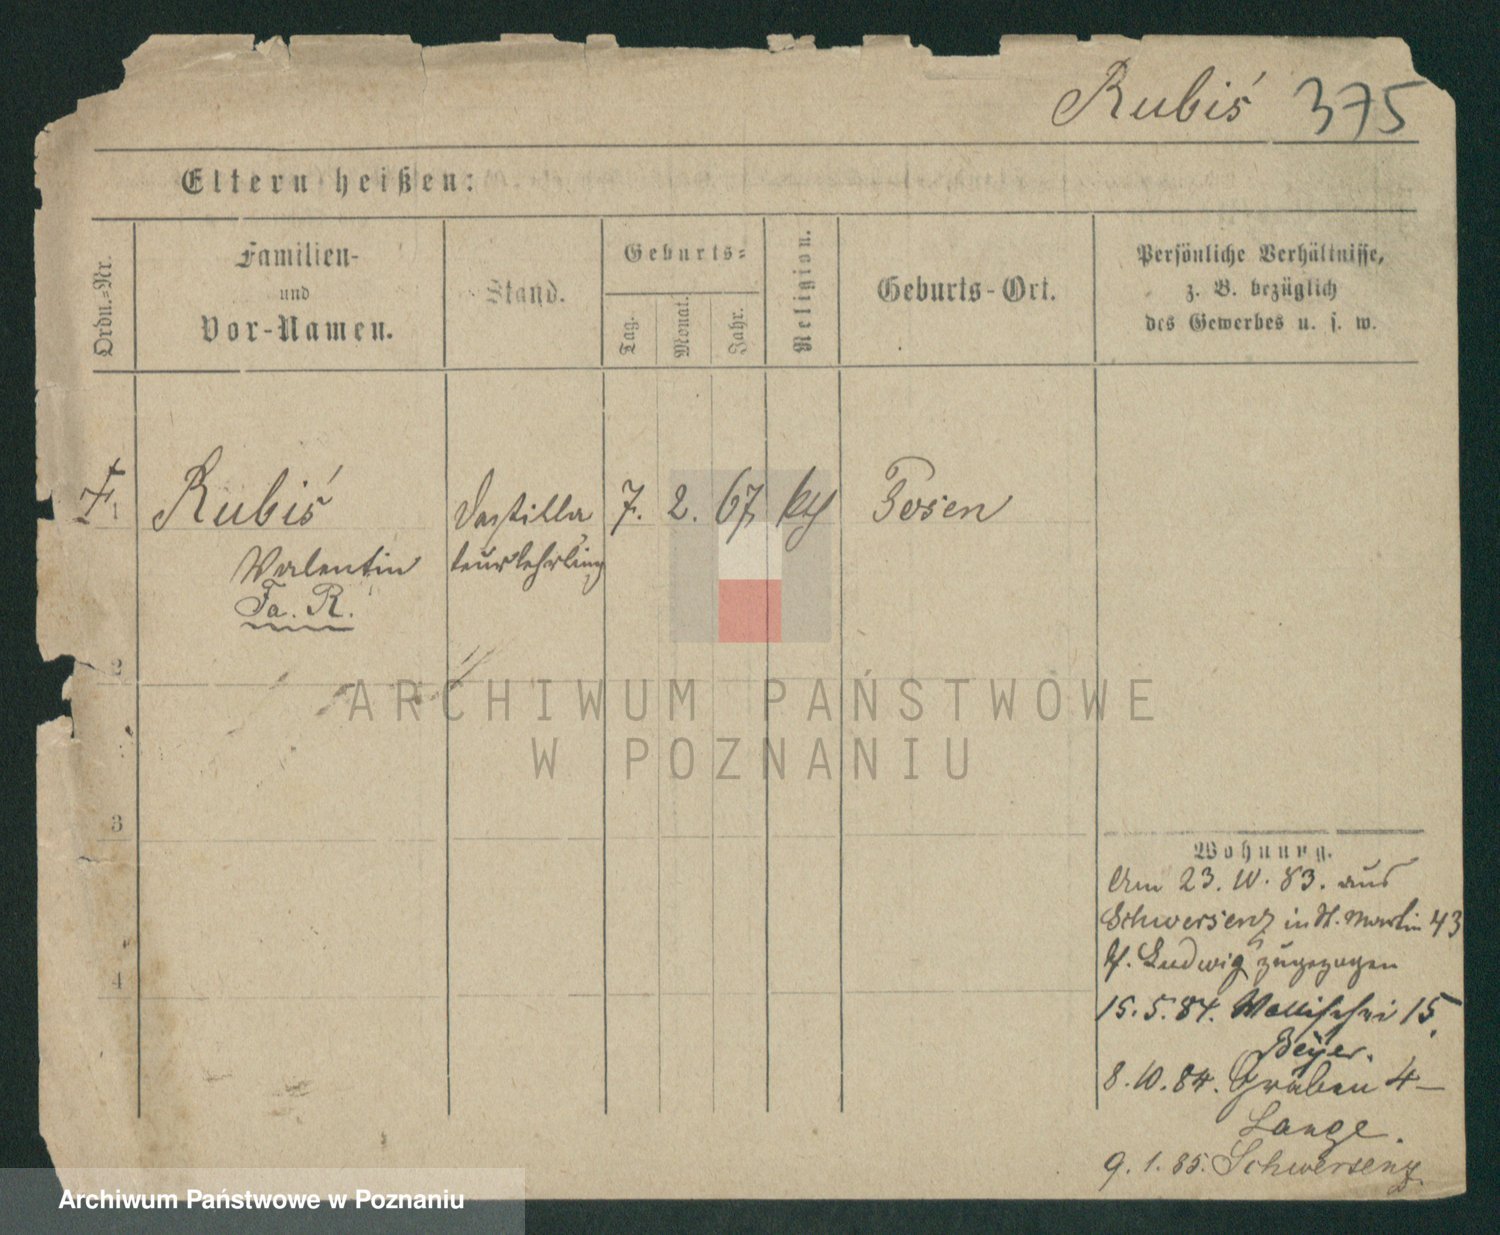 Rubiś 375
Eltern heißen:
Ordn.-Nr.
Familien-
und
Vor-Namen.
Stand.
Geburts-
Tag.
Monat.
Jahr.
Religion.
Geburts-Ort.
Persönliche Verhältnisse,
z. B. bezüglich
des Gewerbes u. s. w.
Rubiś
Destilla
7. 2. 67
Posen
Valentin
teurlehrling
Fa. R.
2
3
4
Wohnung.
Am 23. 10. 83. aus
Schwersenz in St. Martin 43
b. Ludwig zugezogen
15. 5. 84. Wallischei 15.
Beyer.
8. 10. 84. Graben 4
Lange.
9. 1. 85. Schwersenz.
ARCHIWUM PAŃSTWOWE
W POZNANIU
Archiwum Państwowe w Poznaniu